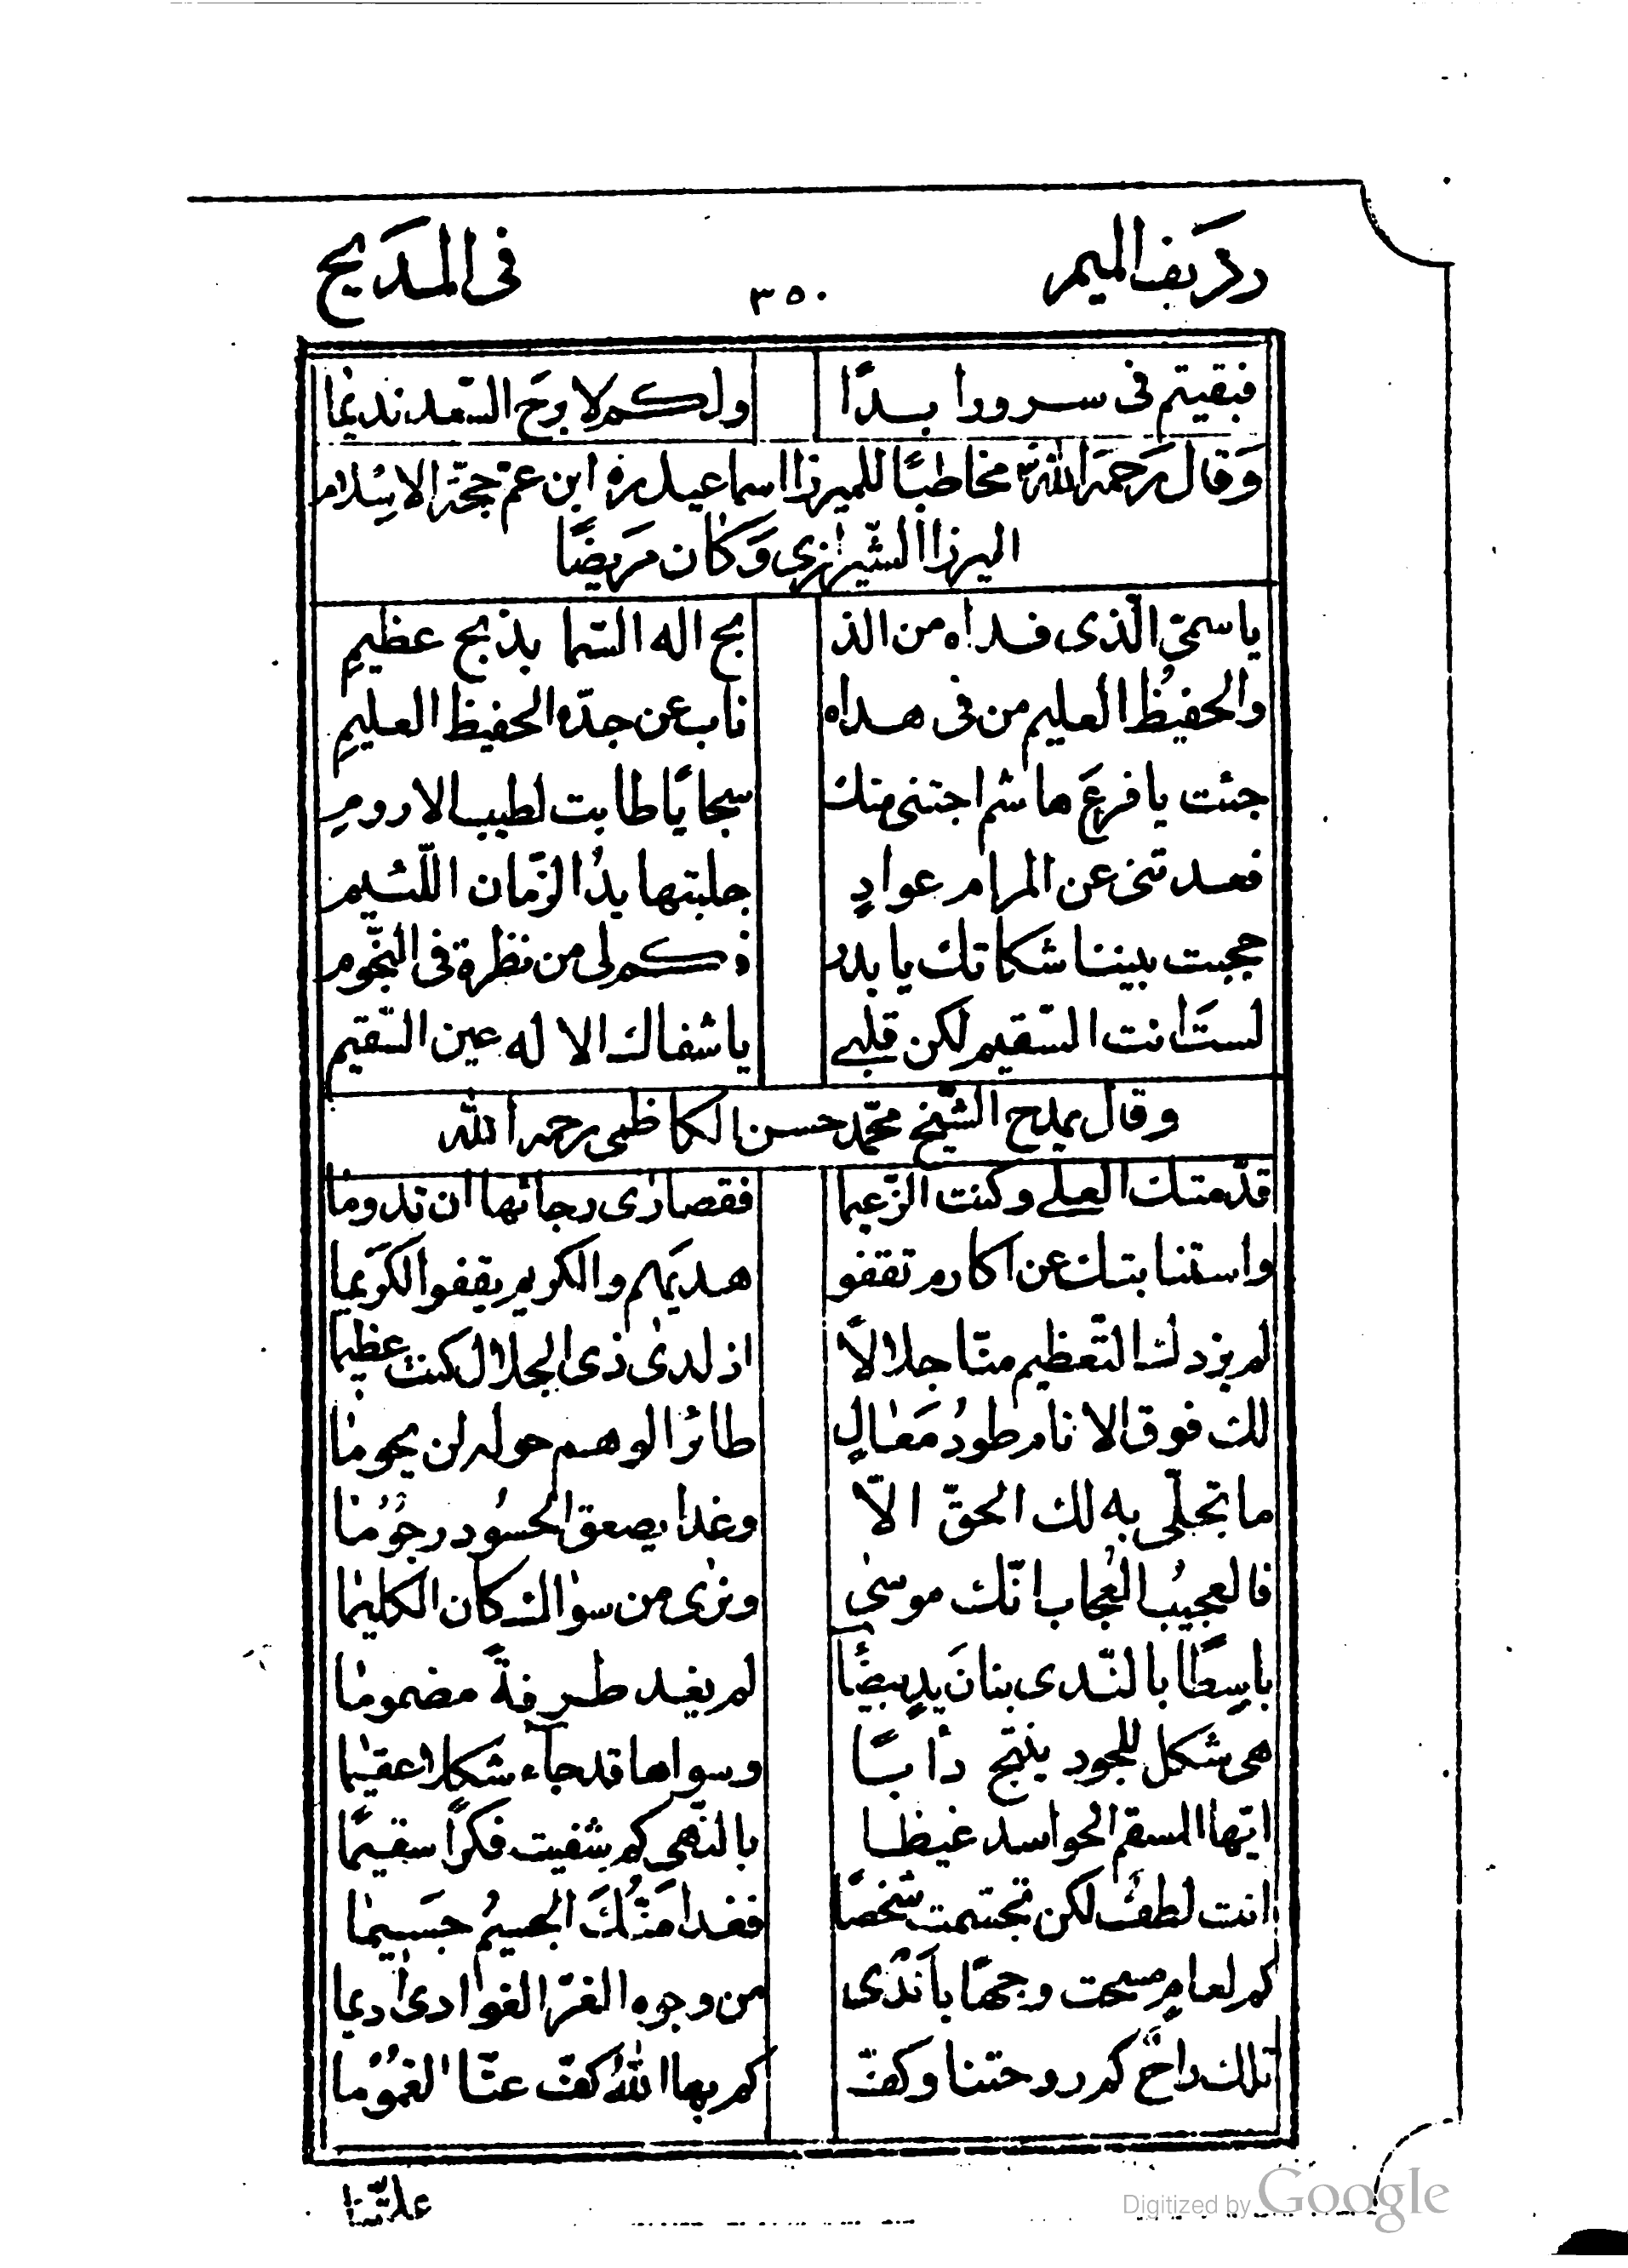 ردّيف الميم ٣٥٠ في المديح
فبقيتم في سرور ابدًا ولكم لا برح السّعد نديما
وقال رحمه الله مخاطبًا للميرزا اسماعيل ره ابن عمّ حجّة الاسلام
الميرزا الشّيرازي وكان مريضًا
يا سميّ الّذي فداه من الذ بح اله السّما بذبح عظيمِ
والحفيظُ العليم من في هداه ناب عن جدّه الحفيظ العليمِ
جئت يا فرعَ هاشم اجتني منك سجايًا طابت لطيب الارومِ
فعدتني عن المرام عوادٍ جلبتها يدُ الزّمان اللّئيم
حجبت بيننا شكاتك يا بدر فكم لي من نظرة في النّجوم
لستَ انت السّقيم لكن قلبي يا شفاك الاله عين السّقيم
وقال يمدح الشّيخ محمّد حسن الكاظمي رحمه الله
قدّمتك العلى وكنت الزّعيما فقصارى رجائها ان تدوما
واستنابتك عن اكارم تقفو هديهم والكريم يقفو الكريما
لم يزدك التّعظيم منّا جلالًا اذ لدى ذي الجلال كنت عظيما
لك فوق الانام طودُ مَعالٍ طائر الوهم حوله لن يحوما
ما تجلّى به لك الحقّ الّا وغدا يصعق الحسُود رجُومُا
فالعجيبُ العُجاب انّك موسى ونرى من سواك كان الكليما
باسِطًا بالنّدى بنانَ يدٍ بيضًا لم يغد طرفةً مضموما
هي شكل للجود ينتج دأبًا وسواها قد جآء شكلا عقيما
ايّها المسقم الحواسد غيظا بالنّهى كم شفيت فكرًا سقيمًا
انت لطفٌ لكن تجسّمت شخصًا فغدا مَنُّكَ الجسيمُ جَسيما
كم لعامٍ مسحت وجهًا بأندى من وجوه الغرّ الغوادى اديما
تلك راحٌ كم روحتنا وكفّت كم بها اللهُ كفّ عنّا الغمُوُما
علّتنا
Digitized by Google